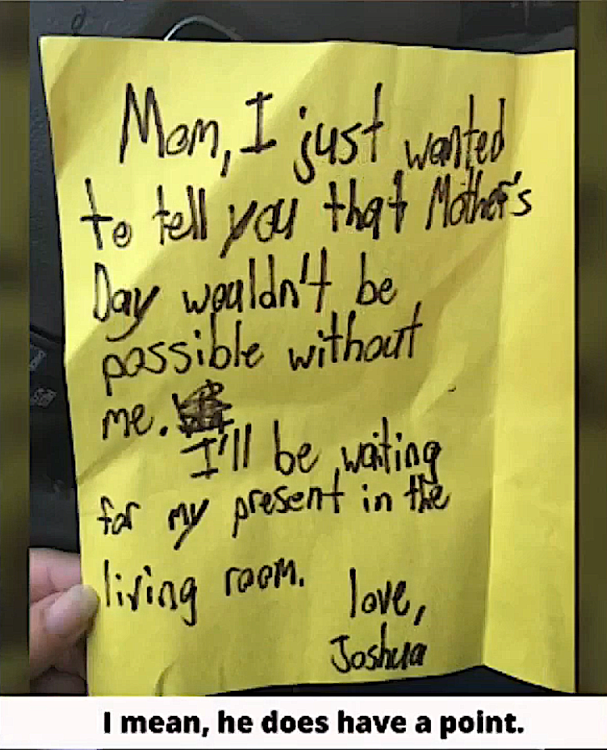 Mom, I just wanted
to tell you that Mother's
Day wouldn't be
possible without
me.
I'll be waiting
for my present in the
living room.
love,
Joshua
I mean, he does have a point.